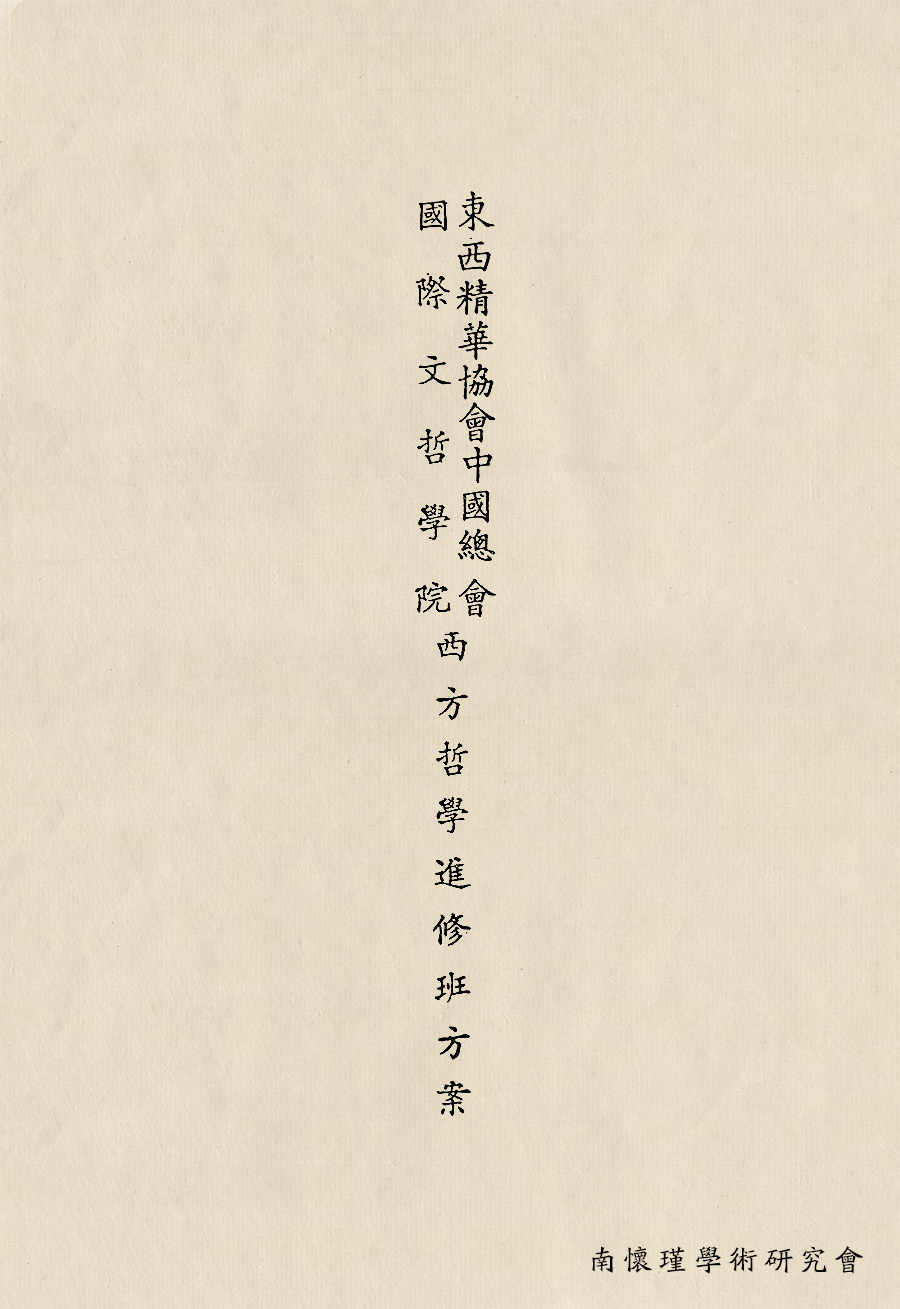 東西精華協會中國總會
國際文哲學院
西方哲學進修班方案
南懷瑾學術研究會